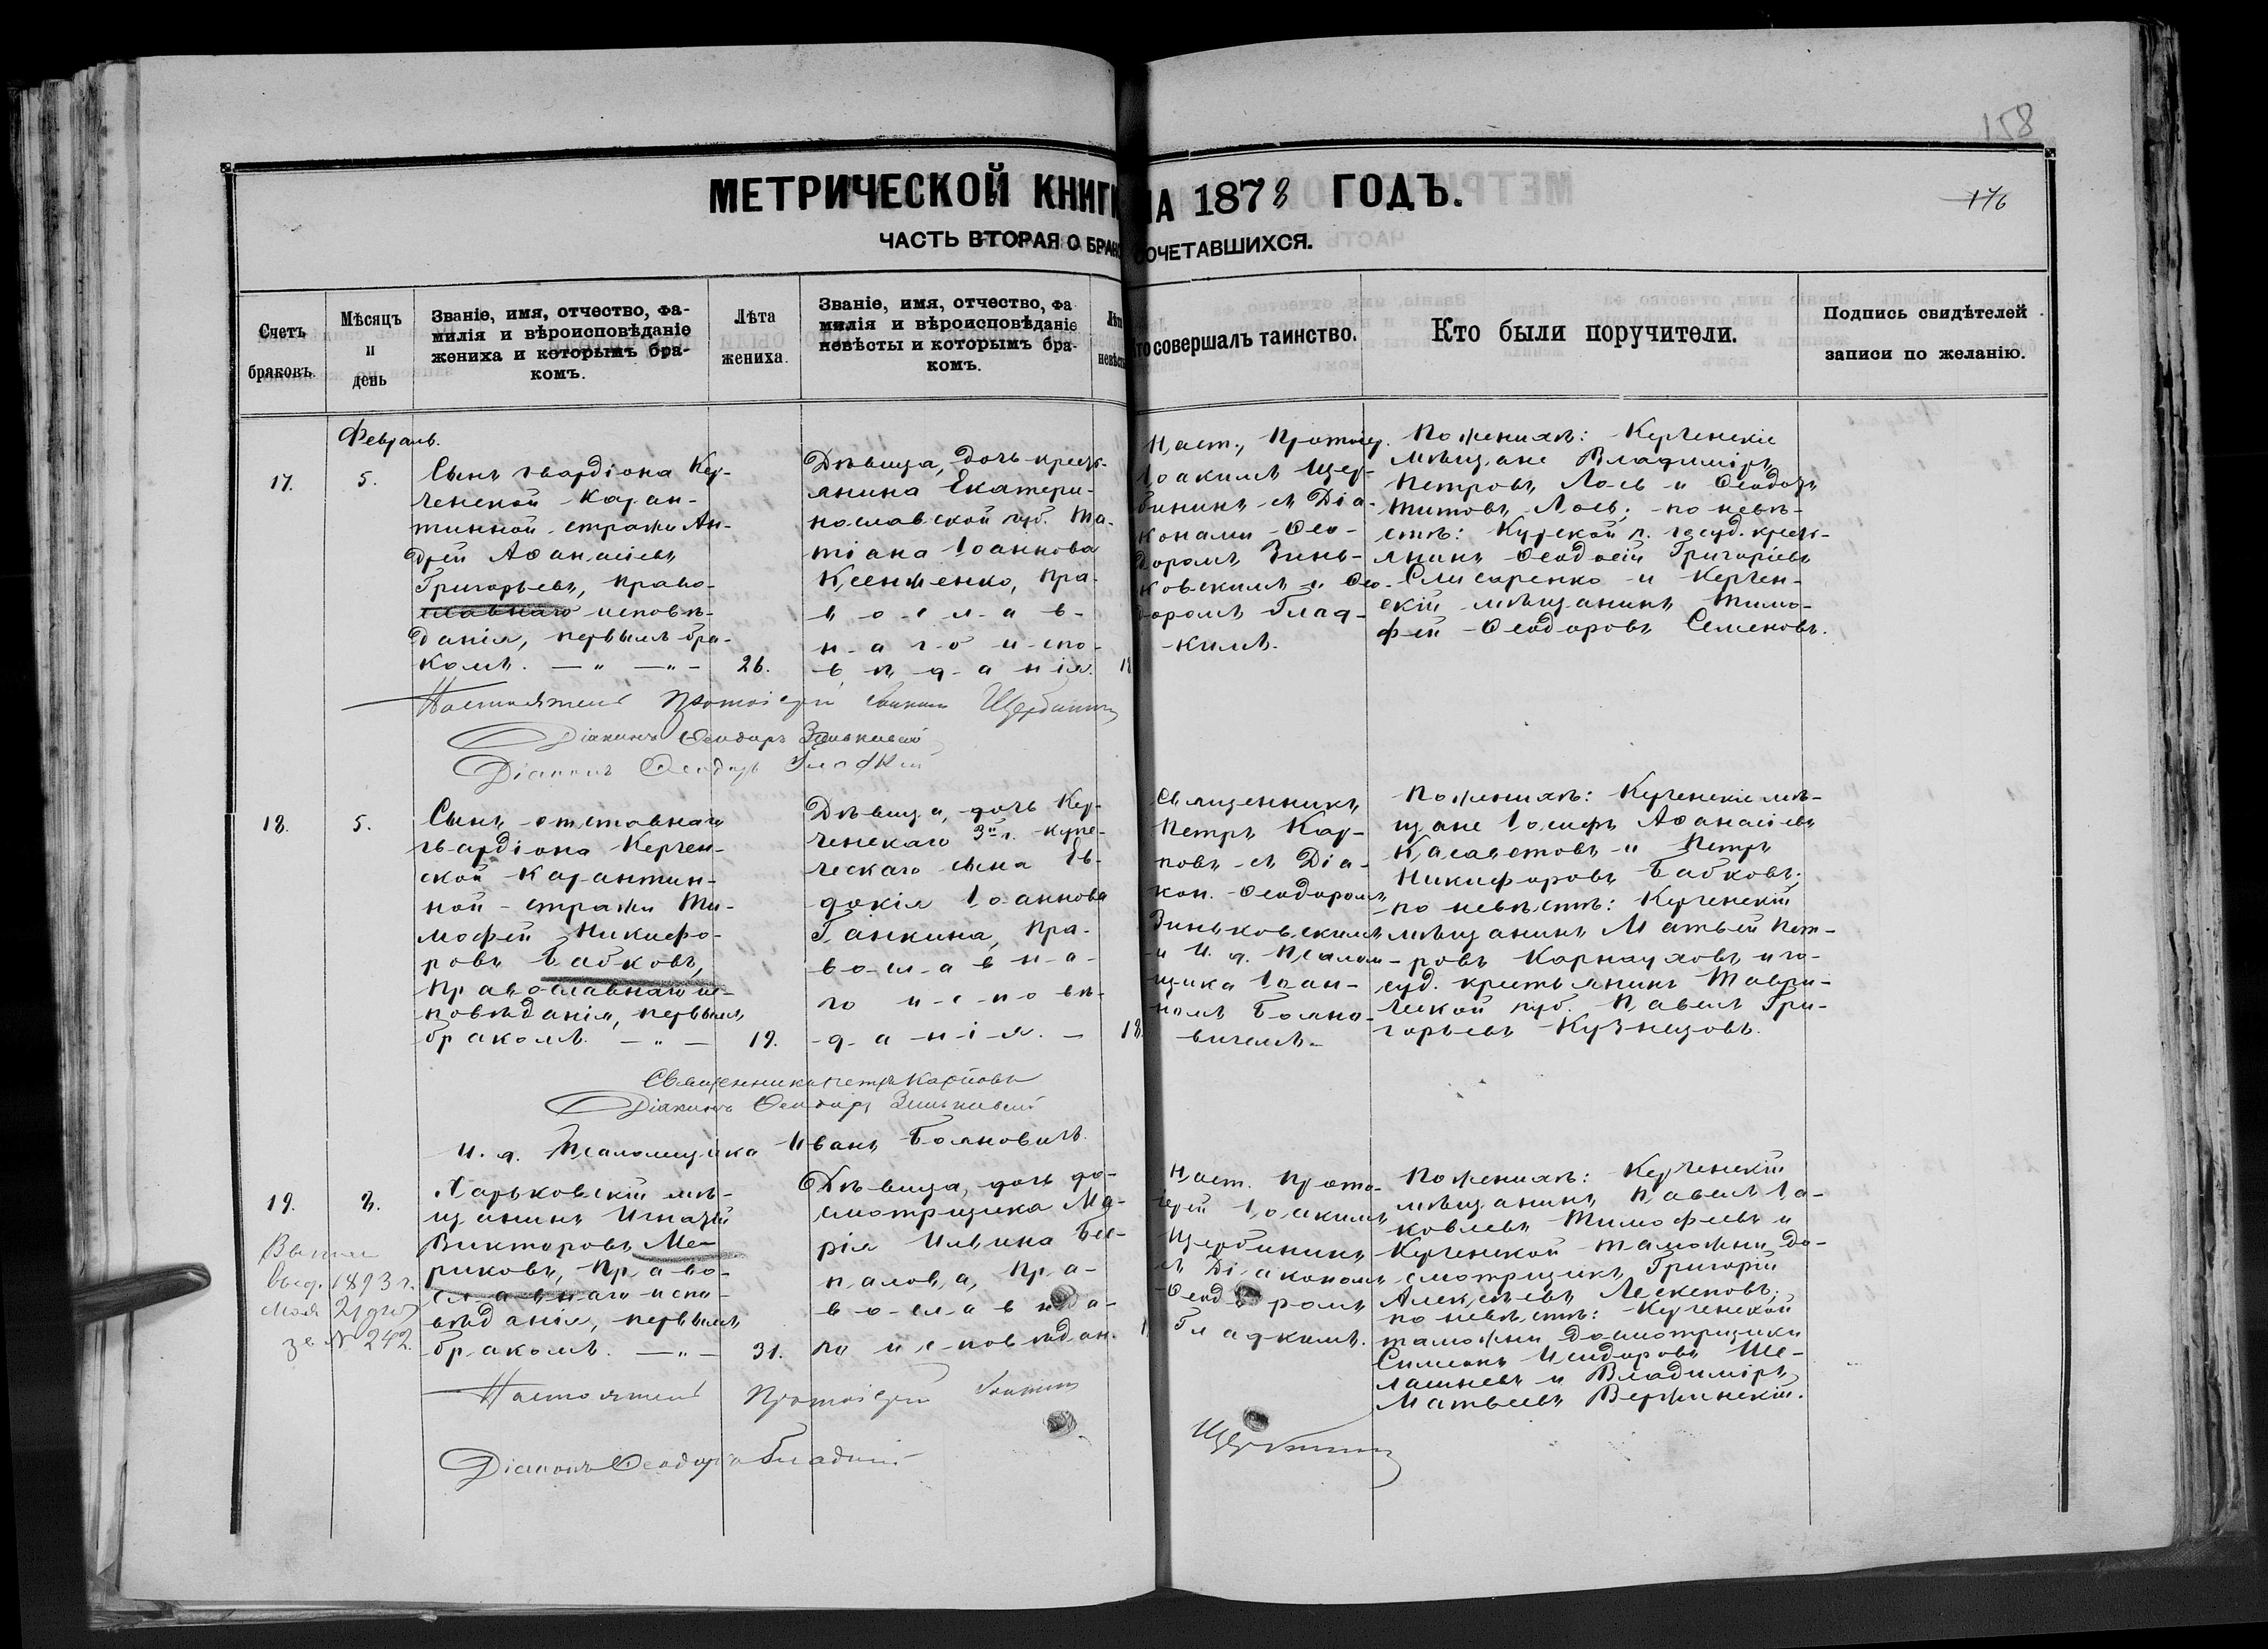 158
МЕТРИЧЕСКОЙ КНИГИ НА 1878 ГОДЪ.
176
ЧАСТЬ ВТОРАЯ О БРАКОСОЧЕТАВШИХСЯ.
Счетъ браковъ.
Мѣсяцъ и день
Званіе, имя, отчество, фа-
милія и вѣроисповѣданіе
жениха и которымъ бра-
комъ.
Лѣта жениха.
Званіе, имя, отчество, фа
милія и вѣроисповѣданіе
невѣсты и которымъ бра-
комъ.
Лѣта невѣсты
Кто совершалъ таинство.
Кто были поручители.
Подпись свидѣтелей
записи по желанію.
Февраль.
17.
5.
Сынъ гвардіона Кер-
ченской Каран-
тинной стражи Ан-
дрей Аѳанасіевъ
Григорьевъ, право-
славнаго исповѣ-
данія, первымъ бра-
комъ. — " — " —
26.
Дѣвица, дочь кресть-
янина Екатери-
нославской губ. Та-
тіана Іоаннова
Ксенженко, пра-
в-о-с-л-а-в-
н-а-г-о и-спо-
в-ѣ-д-а-нія.
18
Наст., Протоіер.
Іоакимъ Щер-
бининъ съ Діа-
конами Ѳео-
доромъ Зинь-
ковскимъ и Ѳео-
доромъ Глад-
-кимъ.
По женихѣ: Керченскіе
мѣщане Владиміръ
Петровъ Лось и Ѳеодоръ
Титовъ Лось; по невѣ-
стѣ: Курской г. госуд. кресть-
янинъ Ѳеодосій Григоріевъ
Слисаренко и Керчен-
скій мѣщанинъ Тимо-
фей Ѳеодоровъ Семеновъ.
Настоятель Протоіерей Іоакимъ Щербининъ
Діаконъ Ѳеодоръ Зиньковскій
Діаконъ Ѳеодоръ Гладкій
18.
5.
Сынъ отставнаго
гвардіона Керчен-
ской Карантин-
ной стражи Ти-
мофей Никифо-
ровъ Бабковъ,
Православнаго ис-
повѣданія, первымъ
бракомъ. — " —
19.
Дѣвица, дочь Кер-
ченскаго 3й г. купе-
ческаго сына Ев-
докія Іоаннова
Ганкина, Пра-
во-сл-а-в-н-а-
го и-с-п-о-вѣ-
-д-а-н-і-я. —
18.
Священникъ
Петръ Кар-
повъ съ Діа-
кон. Ѳеодоромъ
Зиньковскимъ
и И. д. Псалом-
щика Іоан-
номъ Бояно-
вичемъ.
По женихѣ: Керченскіе мѣ-
щане Іосифъ Аѳанасіевъ
Касаветовъ и Петръ
Никифоровъ Бабковъ;
по невѣстѣ: Керченскій
мѣщанинъ Матвѣй Пет-
ровъ Карнауховъ и го-
суд. крестьянинъ Таври-
ческой губ. Павелъ Гри-
горьевъ Кузнецовъ.
Священникъ Петръ Карповъ
Діаконъ Ѳеодоръ Зиньковскій
И. д. Псаломщика Иванъ Бояновичъ.
19.
8.
Харьковскій мѣ-
щанинъ Игнатій
Викторовъ Ме-
риковъ, Право-
славнаго испо-
вѣданія, первымъ
бракомъ. — " —
31.
выд. 1893 г.
мая 21 дня
за № 242.
Дѣвица, дочь до-
смотрщика Ма-
рія Ильина Без-
палова, Пра-
в-о-сл-а-в-н-а-
го и-с-повѣдан.
Наст. Прото-
іерей Іоакимъ
Щербининъ
съ Діакономъ
Ѳеодоромъ
Гладкимъ.
По женихѣ: Керченскій
мѣщанинъ Павелъ Іа-
ковлевъ Тимофеевъ и
Керченской таможни до-
смотрщикъ Григорій
Алексѣевъ Лескеновъ;
по невѣстѣ: Керченской
таможни досмотрщики
Симеонъ Исидоровъ Ше-
лашневъ и Владиміръ
Матвѣевъ Вержинскій.
Настоятель Протоіерей Іоакимъ Щербининъ
Діаконъ Ѳеодоръ Гладкій